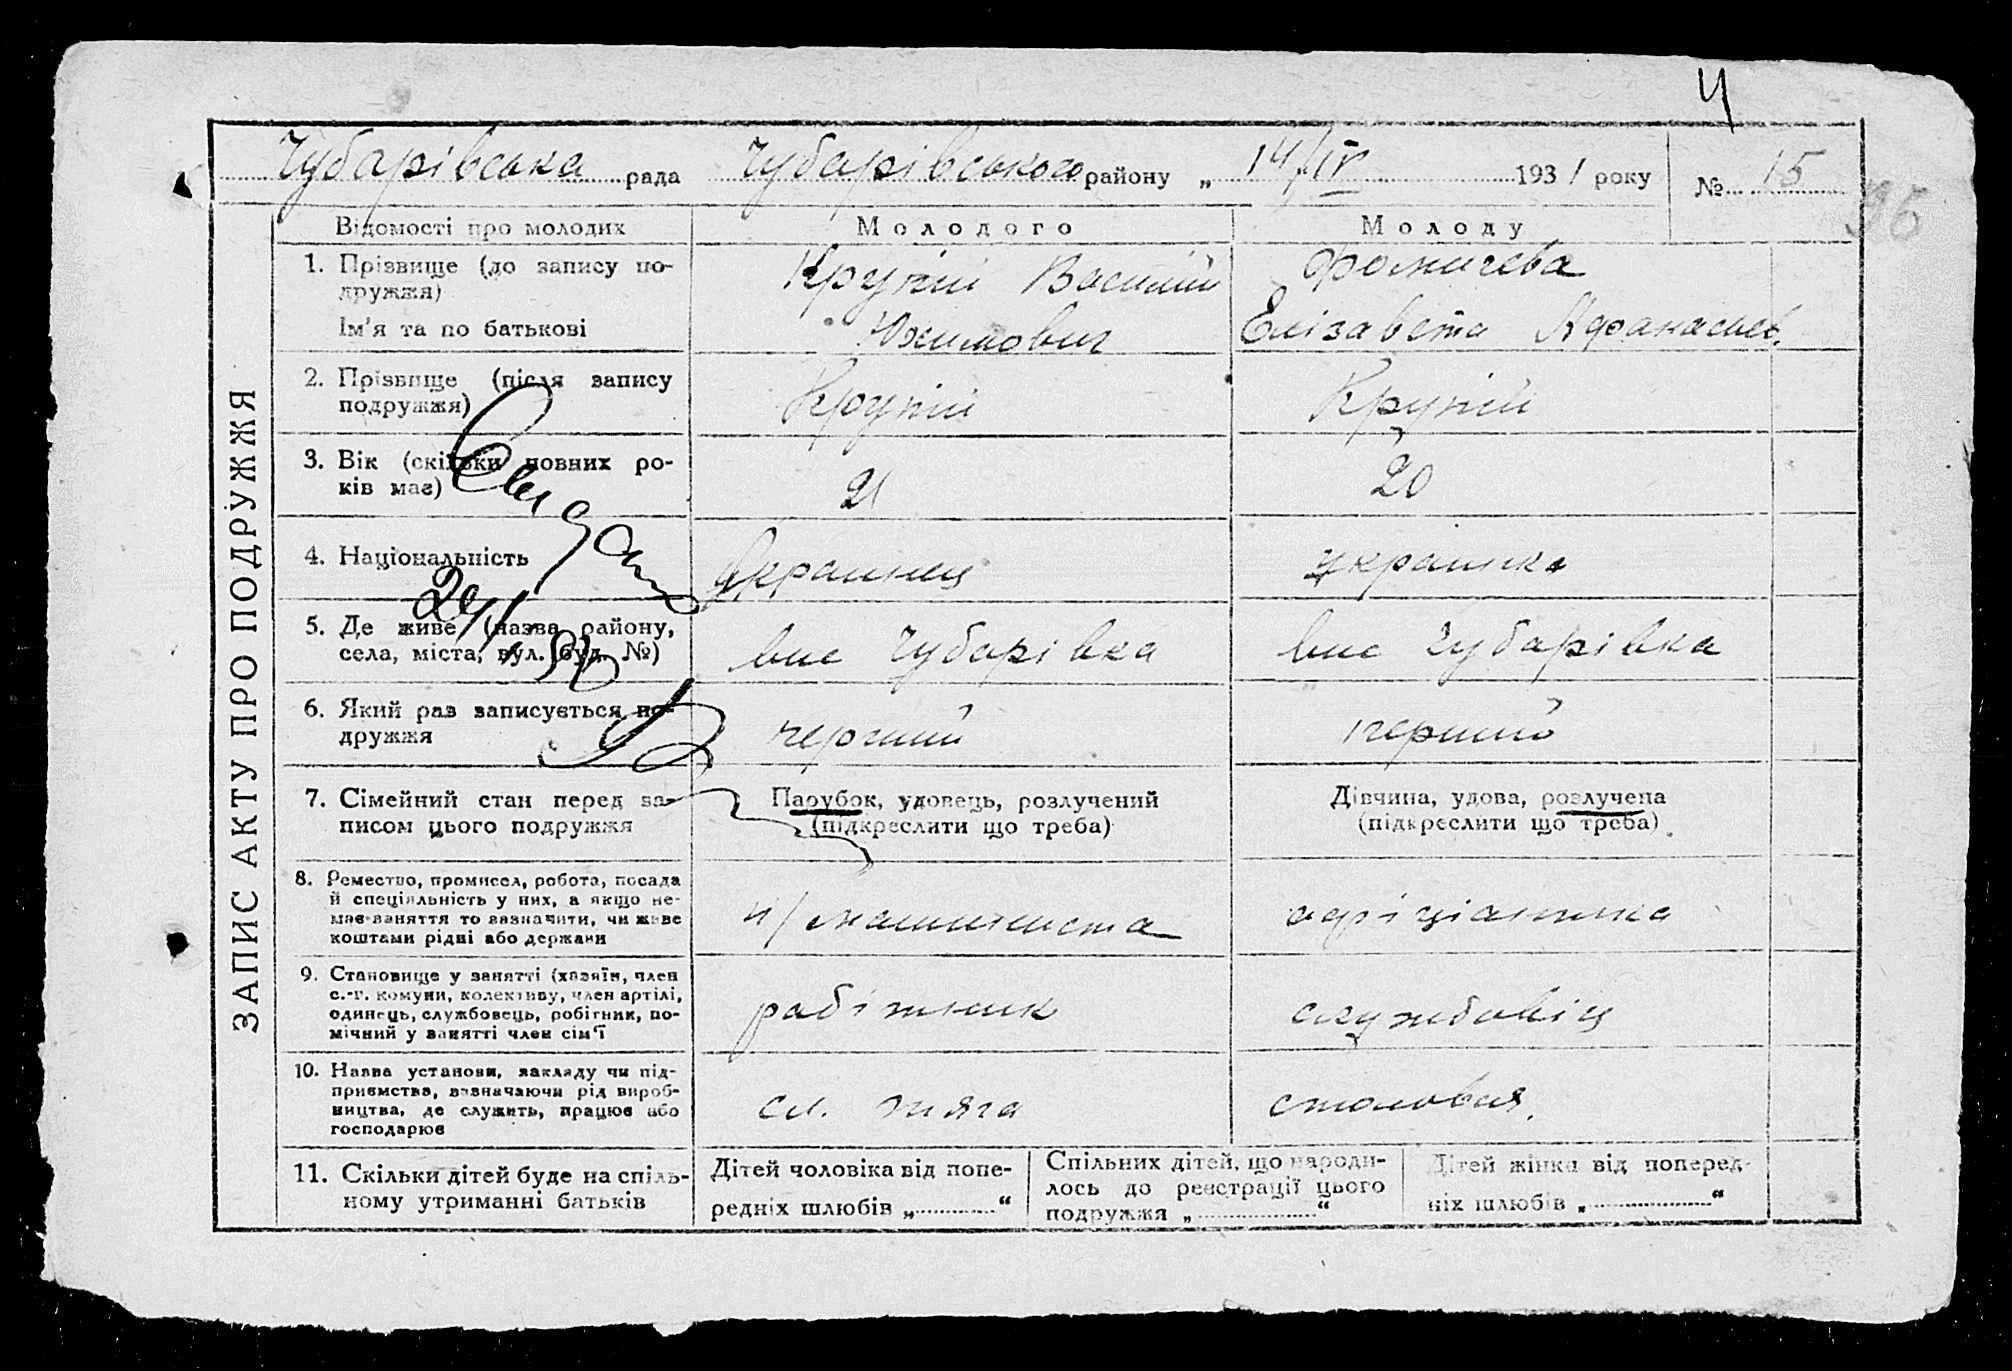 Ч
Чубарівська рада Чубарівського району „ 14/IV 1931 року № 15
96
ЗАПИС АКТУ ПРО ПОДРУЖЖЯ
Відомості про молодих Молодого Молоду
1. Прізвище (до запису по-
дружжя)
Ім'я та по батькові
Крупій Василій
Юхимович
Фомичева
Елізавета Афанасиев.
2. Прізвище (після запису
подружжя)
Крупій
Крупій
3. Вік (скільки повних ро-
ків має)
21
20
4. Національність
Украинец
украинка
5. Де живе (назва району,
села, міста, вул. буд. №)
вис Чубарівка
вис Чубарівка
6. Який раз записується по-
дружжя
перший
перший
7. Сімейний стан перед за-
писом цього подружжя
Парубок, удовець, розлучений
(підкреслити що треба)
Дівчина, удова, розлучена
(підкреслити що треба)
8. Ремество, промисел, робота, посада
й спеціяльність у них, а якщо не-
має заняття то зазначити, чи живе
коштами рідні або держави
п/машиниста
офіціантка
9. Становище у занятті (хазяїн, член
с.-г. комуни, колективу, член артілі,
одинець, службовець, робітник, по-
мічний у занятті член сім'ї
рабітник
службовіц
10. Назва установи, закладу чи під-
приємства, зазначаючи рід вироб-
ництва, де служить, працює або
господарює
сл. тяга
столовая.
11. Скільки дітей буде на спіль-
ному утриманні батьків
Дітей чоловіка від попе-
редніх шлюбів „ “
Спільних дітей, що народи-
лось до реєстрації цього
подружжя „ “
Дітей жінки від поперед-
ніх шлюбів „ “